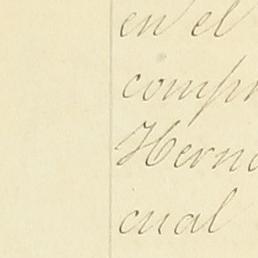 en el
comp
Hern
cual